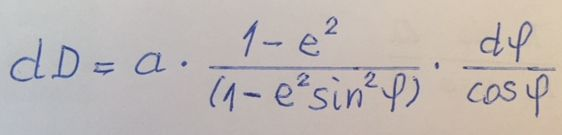 dD = a · (1 - e²)/(1 - e² sin² φ) · dφ/cos φ